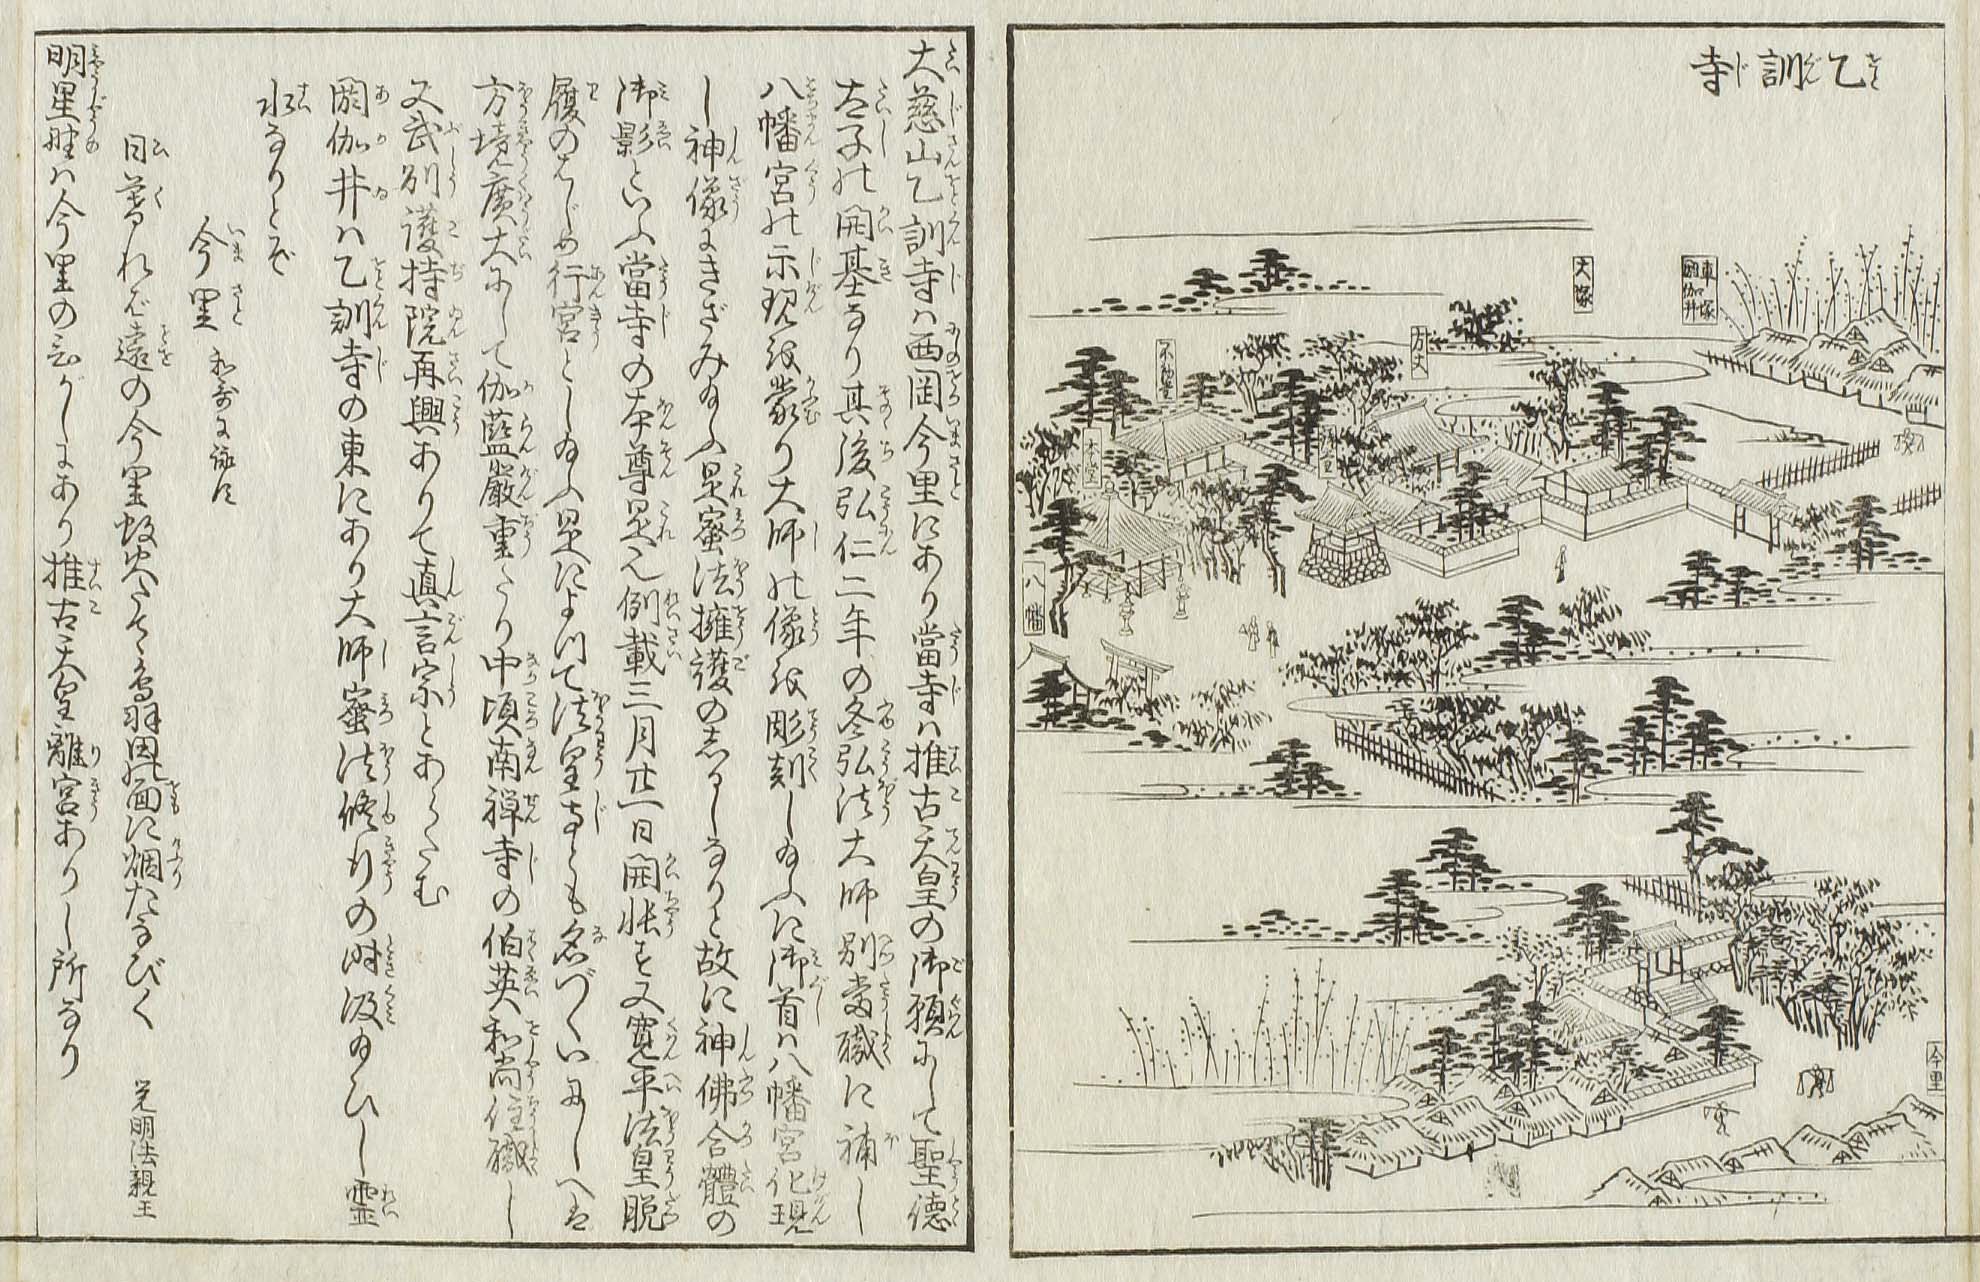 乙訓寺
車塚
閼伽井
大塚
方丈
不動堂
本堂
鎮守
八幡
今里
大慈山乙訓寺ハ西岡今里にあり當寺ハ推古天皇の御願にして聖徳
太子の開基なり其後弘仁二年の冬弘法大師別當職に補し
八幡宮の示現を蒙り大師の像を彫刻し給ふに御首ハ八幡宮化現
し神像にきざみ給ふ是蜜法擁護のしるしなりと故に神佛合體の
御影といふ當寺の本尊是也例載三月廿一日開帳す又寛平法皇脱
履のはじめ行宮とし給ふ是によつて法皇寺とも名づくいにしへは
方境廣大にして伽藍嚴重たり中頃南禅寺の伯英和尚住職し
又武列護持院再興ありて真言宗とあらたむ
閼伽井ハ乙訓寺の東にあり大師蜜法修行の時汲給ひし靈
水なりとぞ
今里 和歌に詠ず
日暮れば遠の今里蚊火たてゝ鳥羽田の面に烟たなびく 覚明法親王
明星野ハ今里の乙がしにあり推古天皇離宮ありし所なり